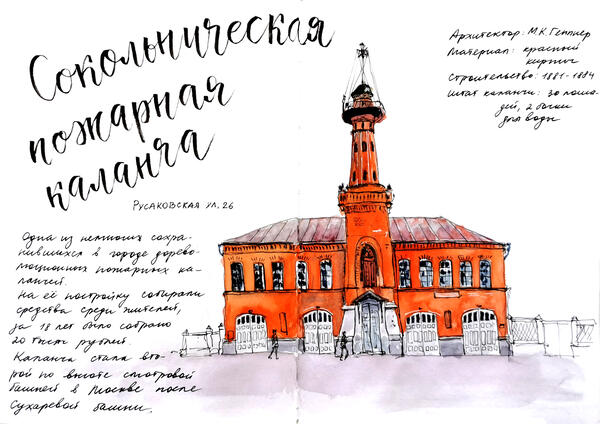 Сокольническая
пожарная
каланча
Русаковская ул. 26
Архитектор: М.К. Геппнер
Материал: красный
кирпич
Строительство: 1881-1884
Штат каланчи: 30 лоша-
дей, 2 бочки
для воды
Одна из немногих сохра-
нившихся в городе дорево-
люционных пожарных ка-
ланчей.
На её постройку собирали
средства среди жителей,
за 18 лет было собрано
20 тысяч рублей.
Каланча стала вто-
рой по высоте смотровой
башней в Москве после
Сухаревой башни.